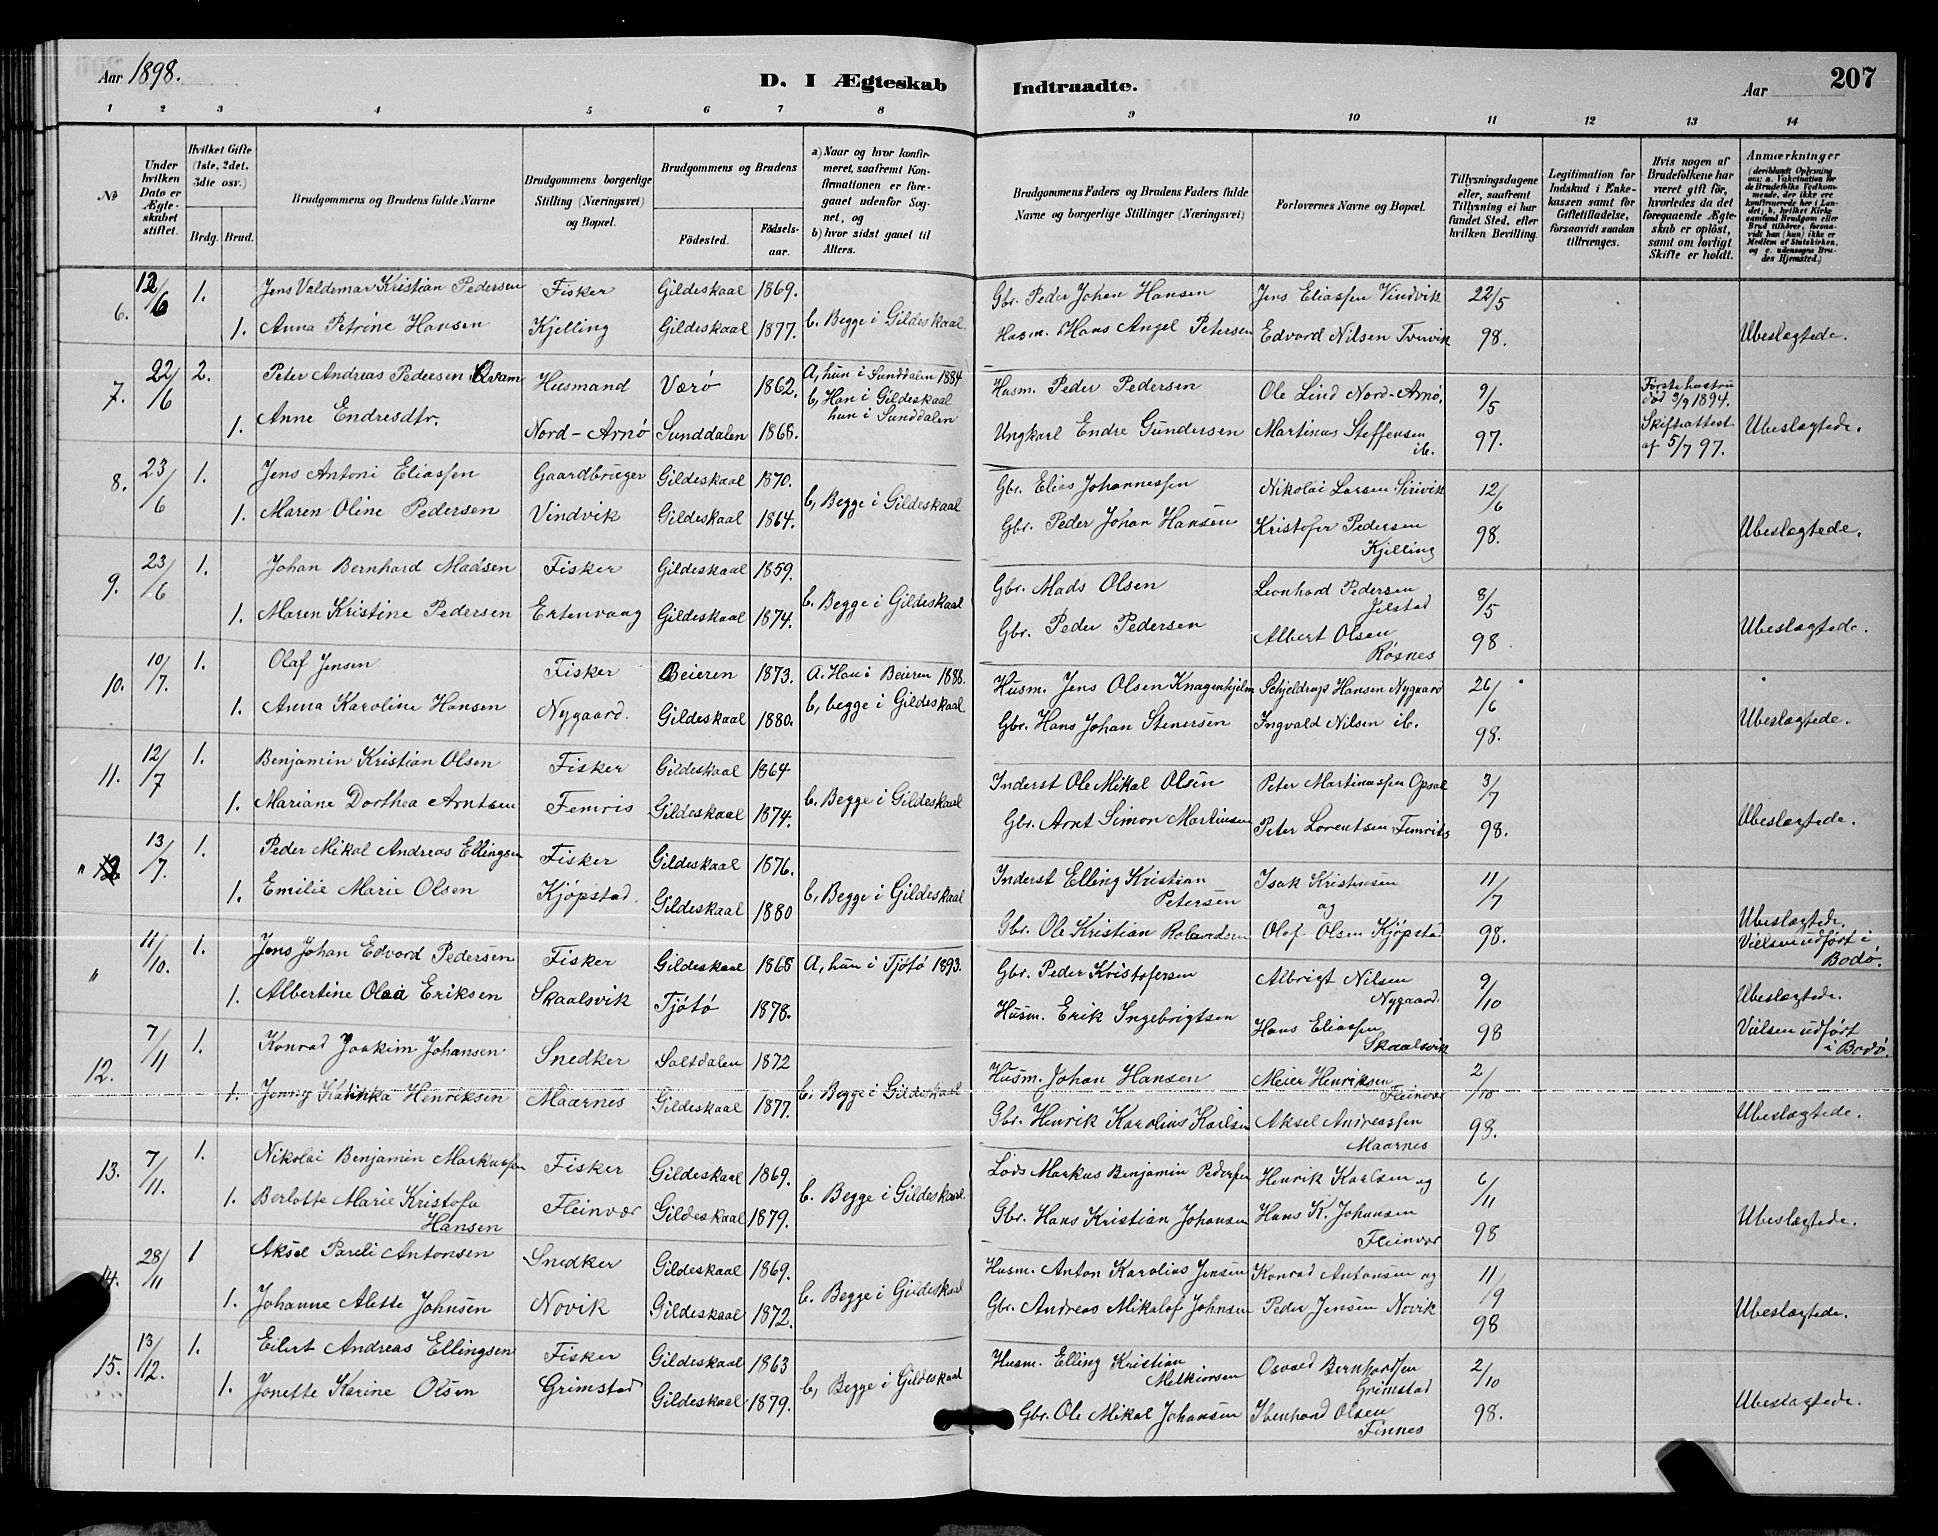 Aar 1898.
D. I Ægteskab Indtraadte.
Aar
207
1 2 3 4 5 6 7 8 9 10 11 12 13 14
No
Under hvilken Dato er Ægteskabet stiftet.
Hvilket Gifte (1ste, 2det, 3die osv.)
Brdg. Brud.
Brudgommens og Brudens fulde Navne
Brudgommens borgerlige Stilling (Næringsvei) og Bopæl.
Brudgommens og Brudens
Fødested. Fødselsaar.
a) Naar og hvor konfirmeret, saafremt Konfirmationen er foregaaet udenfor Sognet, og
b) hvor sidst gaaet til Alters.
Brudgommens Faders og Brudens Faders fulde Navne og borgerlige Stillinger (Næringsvei)
Forlovernes Navne og Bopæl.
Tillysningsdagene eller, saafremt Tillysning ei har fundet Sted, efter hvilken Bevilling.
Legitimation for Indskud i Enkekassen samt for Giftetilladelse, forsaavidt saadan tiltrænges.
Hvis nogen af Brudefolkene har været gift før, hvorledes da det foregaaende Ægteskab er opløst, samt om lovligt Skifte er holdt.
Anmærkninger (deriblandt Oplysning om: a. Vakcination for de Brudefolks Vedkommende, der ikke ere konfirmerede her i Landet; b. hvilket Kirkesamfund Brudgom eller Brud tilhører, forsaavidt han (hun) ikke er Medlem af Statskirken, og c. udensogns Brudes Hjemsted.)
6. 12/6 1. Jens Valdemar Kristian Pedersen Fisker Gildeskaal 1869. Gbr. Peder Johan Hansen Jens Eliassen Vindvik 22/5
1. Anna Petrine Hansen Kjelling Gildeskaal 1877. b. Begge i Gildeskaal. Husm. Hans Angel Petersen Edvard Nilsen Tvervik 98. Ubeslægtede.
7. 22/6 2. Peter Andreas Pedersen Kvam Husmand Værø 1862. A, hun i Sunddalen 1884 b, Han i Gildeskaal hun i Sunddalen Husm. Peder Pedersen Ole Lind Nord-Arnø. 9/5 Første hustru død 3/9 1894.
1. Anne Endresdtr. Nord-Arnø Sunddalen 1868. Ungkarl Endre Gundersen Martinus Steffensen ib. 97. Skifteattest af 5/7 97. Ubeslægtede.
8. 23/6 1. Jens Antoni Eliassen Gaardbruger Gildeskaal 1870. Gbr. Elias Johannessen Nikolai Larsen Sirivik 12/6
1. Maren Oline Pedersen Vindvik Gildeskaal 1864. b, Begge i Gildeskaal Gbr. Peder Johan Hansen Kristofer Pedersen Kjelling 98. Ubeslægtede.
9. 23/6 1. Johan Bernhard Madsen Fisker Gildeskaal 1859. Gbr. Mads Olsen Leonhard Pedersen Jelstad 8/5
1. Maren Kristine Pedersen Ertenvaag Gildeskaal 1874. b. Begge i Gildeskaal Gbr. Peder Pedersen Albert Olsen Røsnes 98. Ubeslægtede.
10. 10/7. 1. Olaf Jensen Fisker Beieren 1873. A. Han i Beieren 1888. Husm. Jens Olsen Knagenhjelm Schjeldrup Hansen Nygaard 26/6
1. Anna Karoline Hansen Nygaard. Gildeskaal 1880. b, begge i Gildeskaal. Gbr. Hans Johan Stenersen Ingvald Nilsen ib. 98. Ubeslægtede.
11. 12/7 1. Benjamin Kristian Olsen Fisker Gildeskaal 1864 Inderst Ole Mikal Olsen Peter Martinussen Opsal 3/7
1. Mariane Dorthea Arntsen Femris Gildeskaal 1874. b. Begge i Gildeskaal Gbr. Arnt Simon Martinsen Peter Lorentsen Femris 98. Ubeslægtede.
" 13/7. 1. Peder Mikal Andreas Ellingsen Fisker Gildeskaal 1876. Inderst Elling Kristian Petersen Isak Kristensen og 11/7
1. Emilie Marie Olsen Kjøpstad. Gildeskaal 1880 b, Begge i Gildeskaal Gbr. Ole Kristian Rolandsen Olaf Olsen Kjøpstad 98. Ubeslægtede. Vielsen udført i Bodø.
" 11/10. 1. Jens Johan Edvard Pedersen Fisker Gildeskaal 1868 A, hun i Tjøtø 1893. Gbr. Peder Kristofersen Albrigt Nilsen Nygaard. 9/10
1. Albertine Olea Eriksen Skaalsvik Tjøtø 1878. Husm. Erik Ingebrigtsen Hans Eliassen Skaalsvik 98 Ubeslægtede. Vielsen udført i Bodø.
12. 7/11 1. Konrad Joakim Johansen Snedker Saltdalen 1872 Husm. Johan Hansen Meier Henriksen Fleinvær 2/10
1. Jenny Katinka Henriksen Maarnes Gildeskaal 1877. b. Begge i Gildeskaal Gbr. Henrik Karolius Karlsen Aksel Andreassen Maarnes 98. Ubeslægtede.
13. 7/11. 1. Nikolai Benjamin Markussen Fisker Gildeskaal 1869. Lods Markus Benjamin Pedersen Henrik Karlsen og 6/11
1. Berlotte Marie Kristofa Hansen Fleinvær Gildeskaal 1879. b. Begge i Gildeskaal. Gbr. Hans Kristian Johansen Hans K. Johansen Fleinvær 98 Ubeslægtede.
14. 28/11 1 Aksel Pareli Antonsen Snedker Gildeskaal 1869. Husm. Anton Karolius Jensen Konrad Antonsen og 11/9
1. Johanne Alette Johnsen Novik Gildeskaal 1872. b. Begge i Gildeskaal Gbr. Andreas Mikalof Johnsen Peder Jensen Novik 98 Ubeslægtede.
15. 13/12. 1. Eilert Andreas Ellingsen Fisker Gildeskaal 1863 Husm. Elling Kristian Melkiorsen Osvald Bernhardsen Grimstad 2/10
1. Jonette Karine Olsen Grimstad Gildeskaal 1879. b, Begge i Gildeskaal Gbr. Ole Mikal Johansen Ibenhard Olsen Finnes 98. Ubeslægtede.